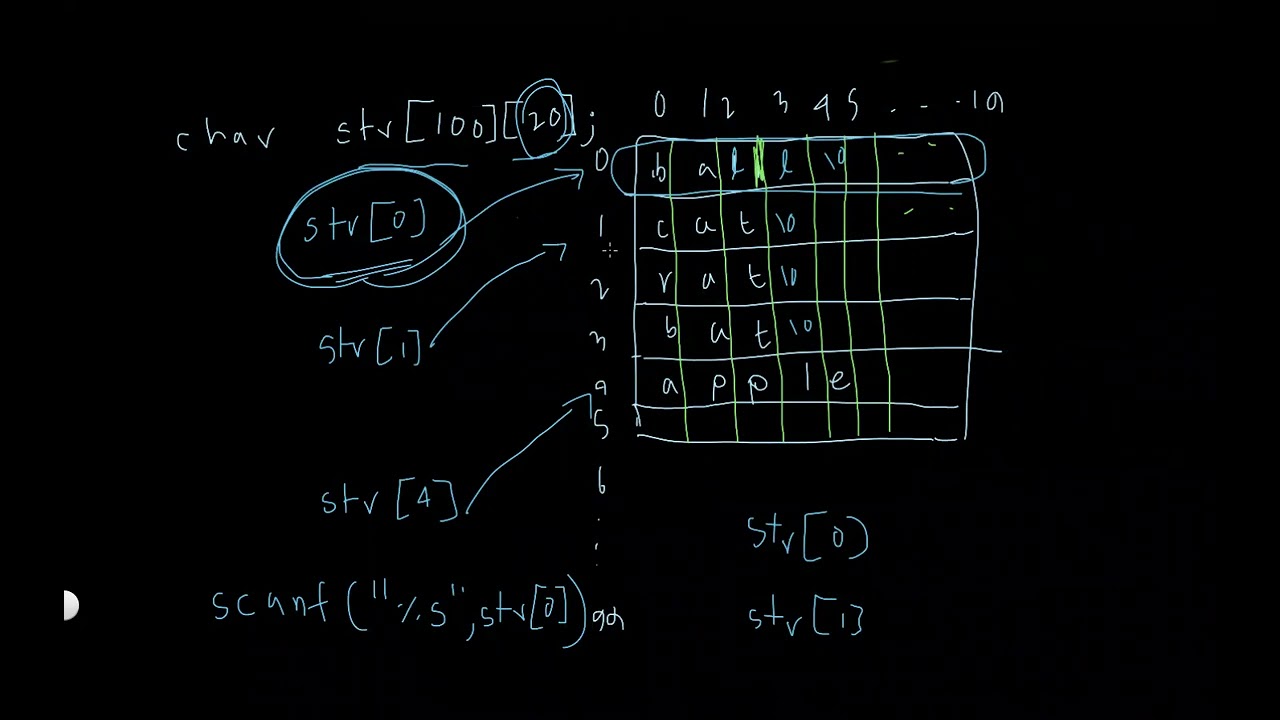 char str[100][20];
0 1 2 3 4 5 . . . . 19
0 b a l l \0 - -
1 c a t \0 - -
2 r a t \0
3 b a t \0
4 a p p l e
5
6
.
.
99
str[0]
str[1]
str[4]
scanf("%s",str[0])
str[0]
str[1]